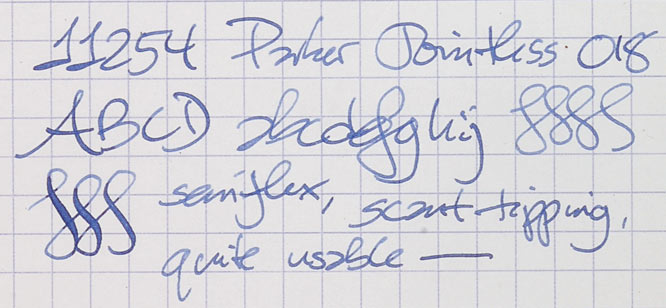 11254 Parker Pointless 018
ABCD abcdefghij
semiflex, scant tipping,
quite usable —